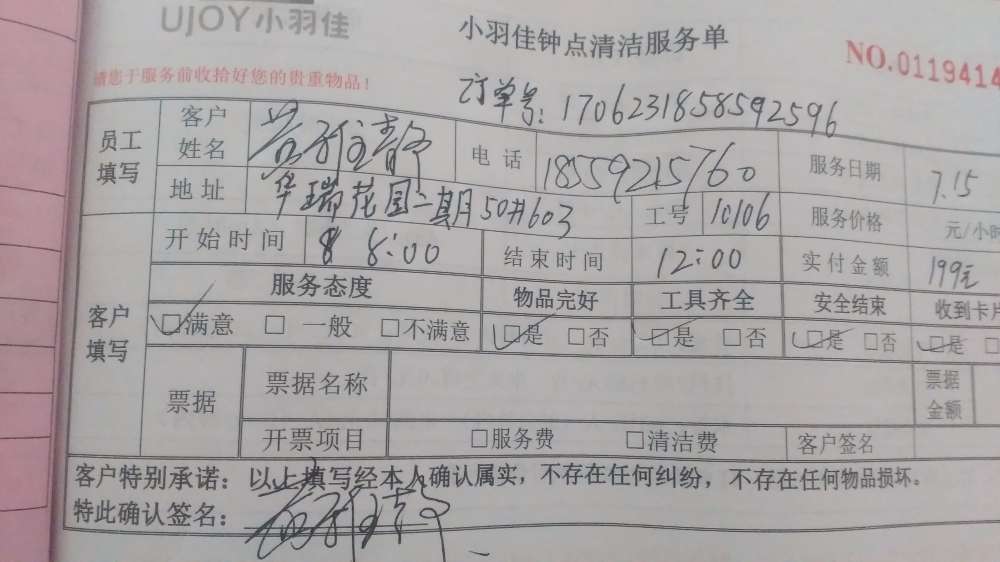 UJOY小羽佳
小羽佳钟点清洁服务单
NO.0119414
请您于服务前收拾好您的贵重物品!
订单号:1706231858592596
员工填写 客户姓名 电话 18559215760 服务日期 7.15
地址 华瑞花园二期50#603 工号 10106 服务价格 元/小时
开始时间 8:00 结束时间 12:00 实付金额 199元
客户填写 服务态度 物品完好 工具齐全 安全结束 收到卡片
☑满意 □一般 □不满意 ☑是 □否 ☑是 □否 ☑是 □否 ☑是 □
票据 票据名称 票据金额
开票项目 □服务费 □清洁费 客户签名
客户特别承诺:以上填写经本人确认属实,不存在任何纠纷,不存在任何物品损坏。
特此确认签名: